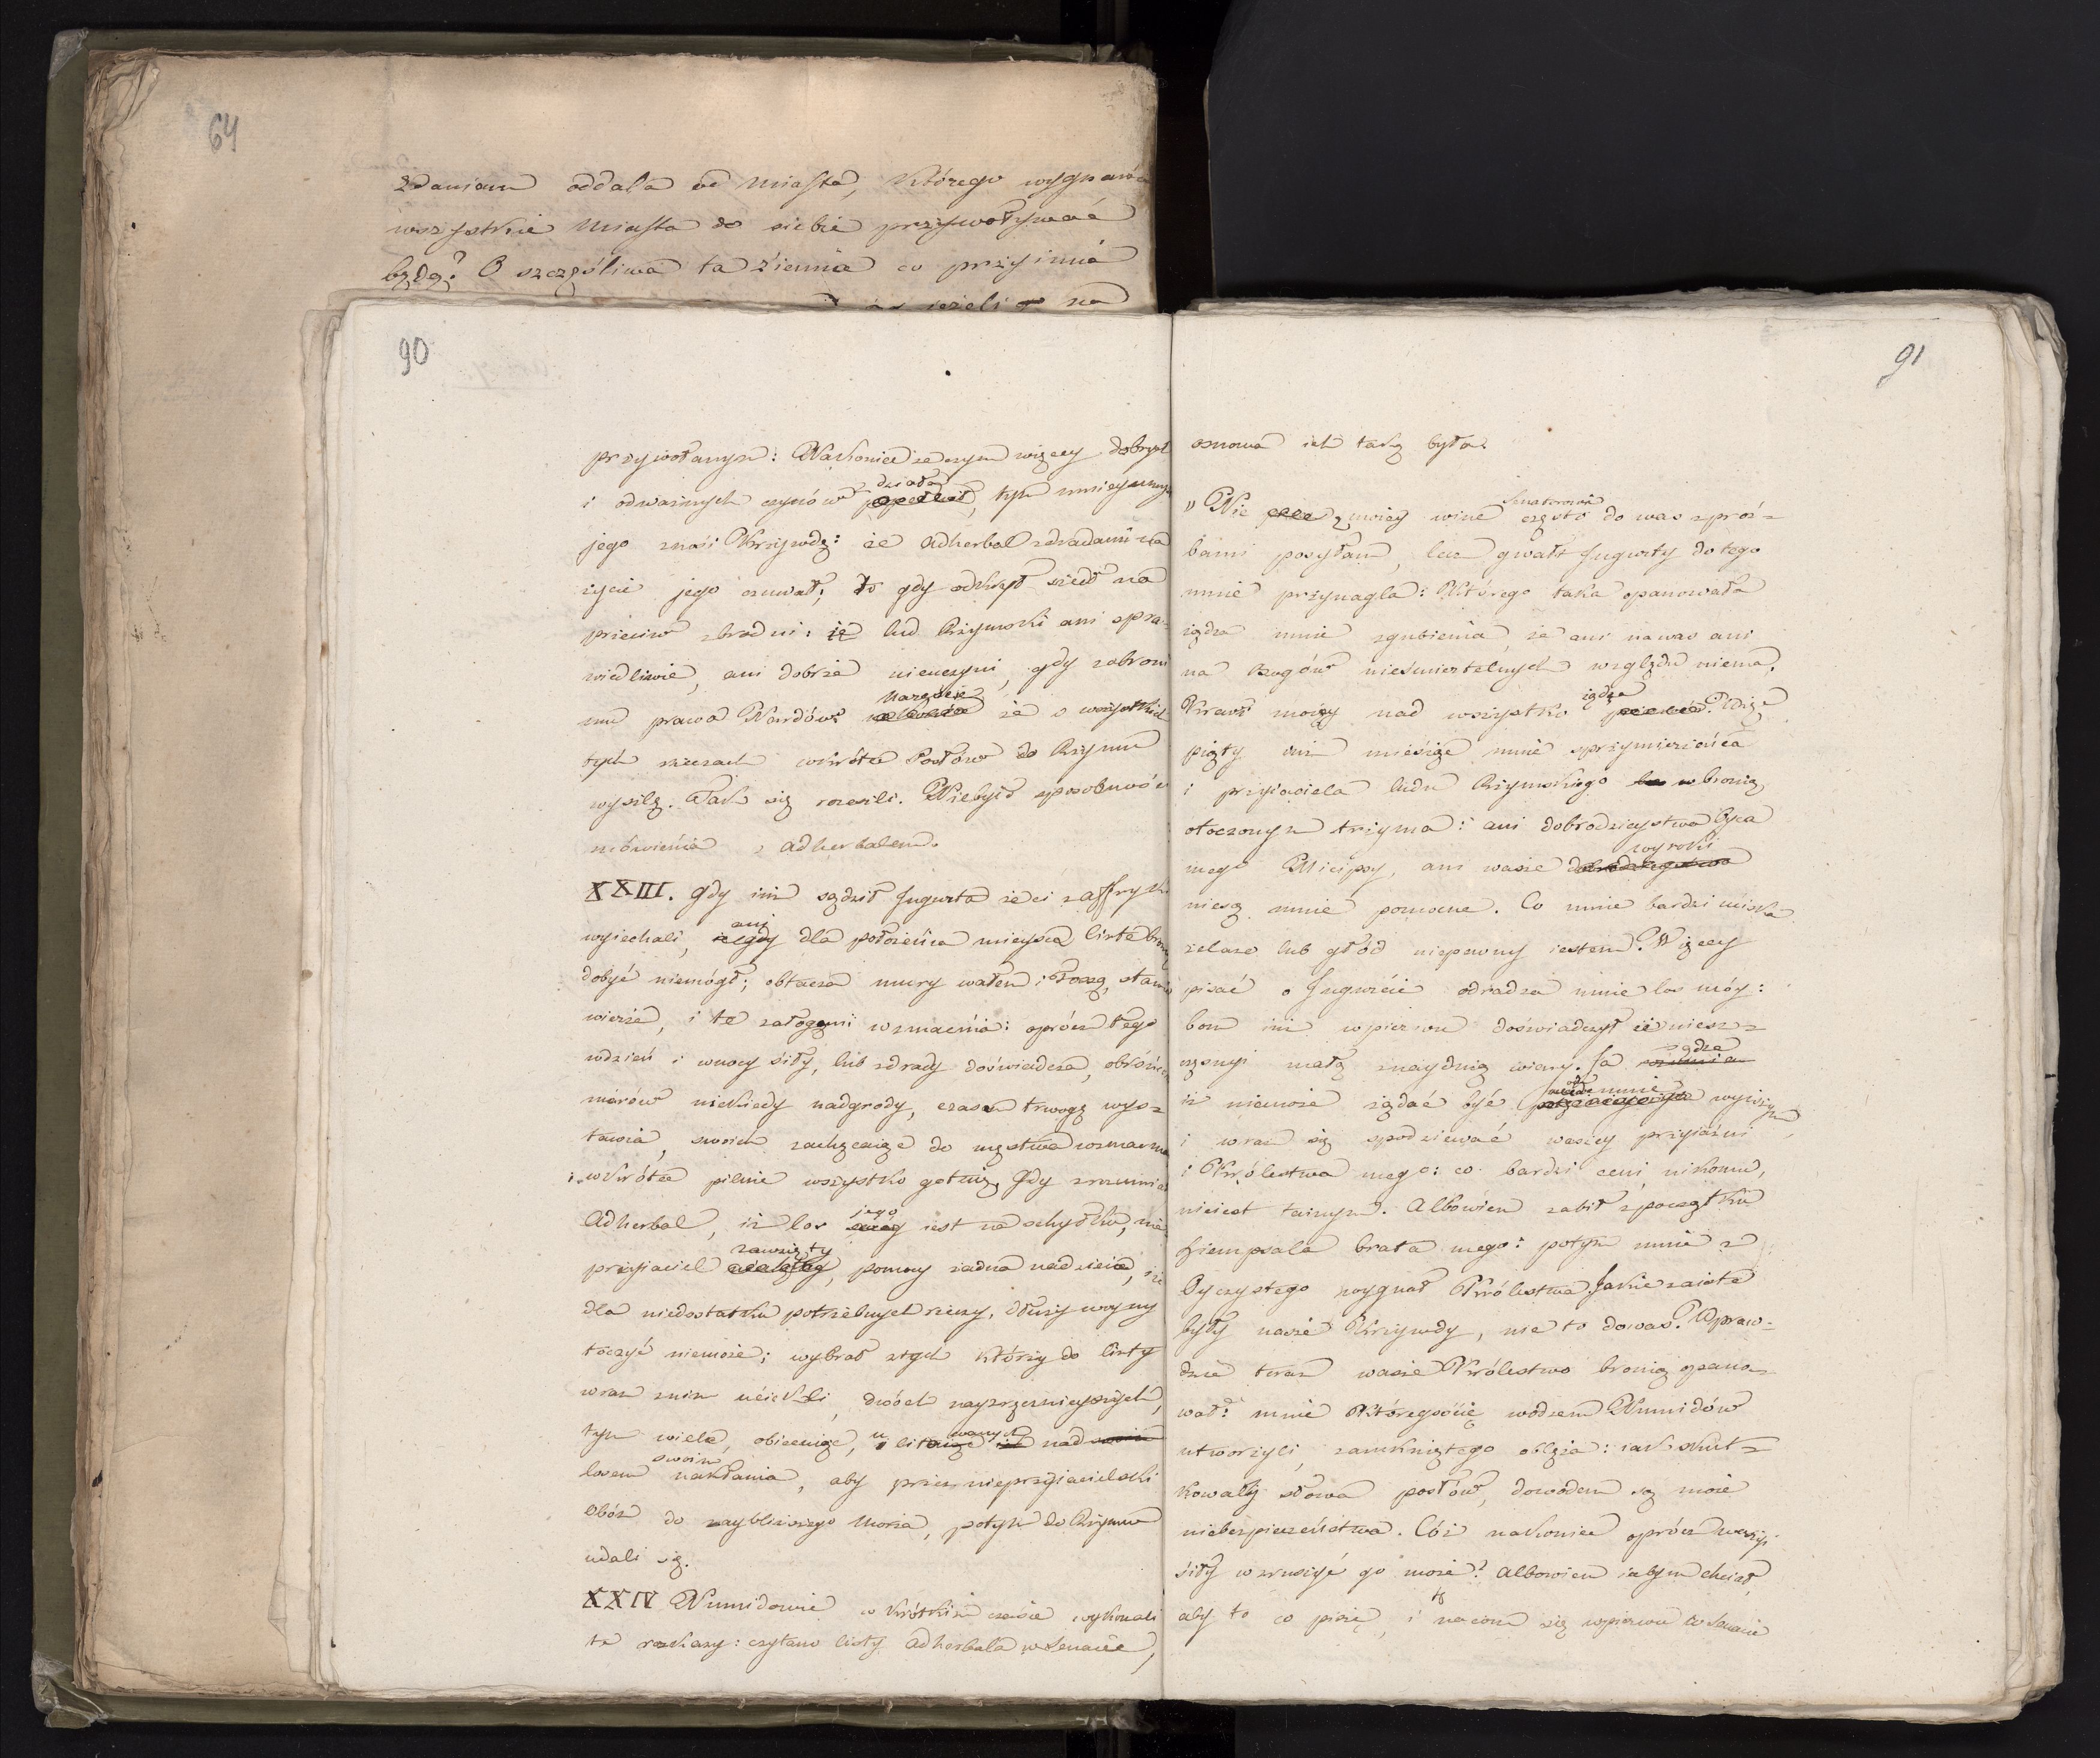 64
zdaniem oddala od Miasta, którego wygnańca
wszystkie Miasta do siebie przywoływać
będą? O szczęśliwa ta ziemia co przyimie
ieżeli na
90
przywołanym: Nakoniec ze czym więcey dobrych
i odważnych czynów działał, tym mniey
jego znosi Krzywdę: że Adherbal zdradami na
życie jego czuwał; to gdy odkrył szedł na
przeciw zbrodni: że lud Rzymski ani spra-
wiedliwie, ani dobrze nieuczyni, gdy zabroni
mu prawa Narodów: nareście że o wszystkich
tych rzeczach wkrótce Posłów do Rzymu
wysile. Tak się rozeszli. Niebyło sposobności
mówienia z Adherbalem.
XXIII. Gdy iuż sądził Jugurta że ci z Affryki
wyiechali, ani dla położenia mieysca Cirte bronią
dobyć niemógł; obtacza mury wałem i Foszą, stawia
wieże, i te załogami wzmacnia: oprócz tego
wdzień i wnocy siły, lub zdrady doświadcza, obrońcom
murów niekiedy nadgrody, czasem trwogę wys-
tawia, swoich zachęcaiąc do męstwa wzmacnia
i wkrótce pilnie wszystko gotuie. Gdy zrozumiał
Adherbal, iż los jego iest na schyłku, nie-
przyiaciel zawzięty, pomocy żadna nadzieia, iż
dla niedostatku potrzebnych rzeczy, dłużey woyny
toczyć niemoże; wybrał z tych którzy do Cirty
wraz z nim uciekli, dwóch nayzręcznieyszych,
tym wiele, obiecuiąc, u litowanych nad
losem swoim nakłania, aby przez nieprzyiacielski
obóz do naybliższego Morza, potym do Rzymu
udali się.
XXIV Numidowie w krótkim czasie wykonali
te rozkazy: czytano listy Adherbala w Senacie,
91
osnowa ich taką była.
„ Nie z moiey winy Senatorowie często do was z proź-
bami posyłam, lecz gwałt Jugurty do tego
mnie przynagla: Którego taka opanowała
żądza mnie zgubienia, że ani na was ani
na Bogów nieśmiertelnych względu niema.
Krwi moiey nad wszystko żąda. Więc
piąty iuż miesiąc mnie sprzymierzeńca
i przyiaciela ludu Rzymskiego bronią
otoczonym trzyma: ani dobrodzieystwa Oyca
mego Micipsy, ani wasze wyroki
niesą mnie pomocne. Co mnie bardzi uciska
żelazo lub głód niepewny iestem. Więcey
pisać o Jugurcie odradza mnie los móy:
bom iuż wpierwu doświadczył iż niesz-
częsnyi małą znaydują wiarę. Ja sądzę
iż niemoże żądać być odemnie wyższym
i wraz się spodziewać waszey przyiaźni
i Królestwa mego: co bardzi ceni, nikomu,
nieiest taynym. Albowiem zabił z początku
Hiempsala brata mego: potym mnie z
Oyczystego wygnał Królestwa. Jakie zaiste
były nasze Krzywdy, nie to do was. Wpraw-
dzie teraz wasze Królestwo bronią opano-
wał: mnie Któregoście wodzem Numidów
utworzyli, zamkniętego oblęża: iak skut-
kowały słowa posłów, dowodem są moie
niebezpieczeństwa. Cóż nakoniec oprócz waszyi
siły wzruszyć go może? Albowiem iabym chciał,
aby to co piszę, i na com się wpierwu w Senacie